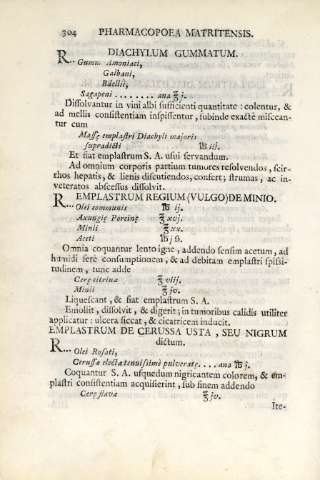 304 PHARMACOPOEA MATRITENSIS.
DIACHYLUM GUMMATUM.
R... Gumm. Amoniaci,
Galbani,
Bdellii,
Sagapeni ........ ana ℥ j.
Dissolvantur in vini albi sufficienti quantitate : colentur, &
ad mellis consistentiam inspissentur, subinde exacte miscean-
tur cum
Massę emplastri Diachyli majoris
supradicti ℔ iij.
Et fiat emplastrum S. A. usui servandum.
Ad omnium corporis partium tumores resolvendos, scir-
rhos hepatis, & lienis discutiendos, confert; strumas, ac in-
veteratos abscessus dissolvit.
EMPLASTRUM REGIUM (VULGO) DE MINIO.
R... Olei communis ℔ ij.
Axungię Porcinę ℥ xvj.
Minii ℥ xx.
Aceti ℔ ſs.
Omnia coquantur lento igne, addendo sensim acetum, ad
humidi ferè consumptionem, & ad debitam emplastri spissi-
tudinem, tunc adde
Cerę citrinę ℥ viij.
Minii ℥ jv.
Liquescant, & fiat emplastrum S. A.
Emollit, dissolvit, & digerit; in tumoribus calidis utiliter
applicatur : ulcera siccat, & cicatricem inducit.
EMPLASTRUM DE CERUSSA USTA, SEU NIGRUM
dictum.
R... Olei Rosati,
Cerussę electę tenuissimè pulveratę.... ana ℔ j.
Coquantur S. A. usquedum nigricantem colorem, & em-
plastri consistentiam acquisierint, sub finem addendo
Cerę flavę ℥ jv.
Ite-